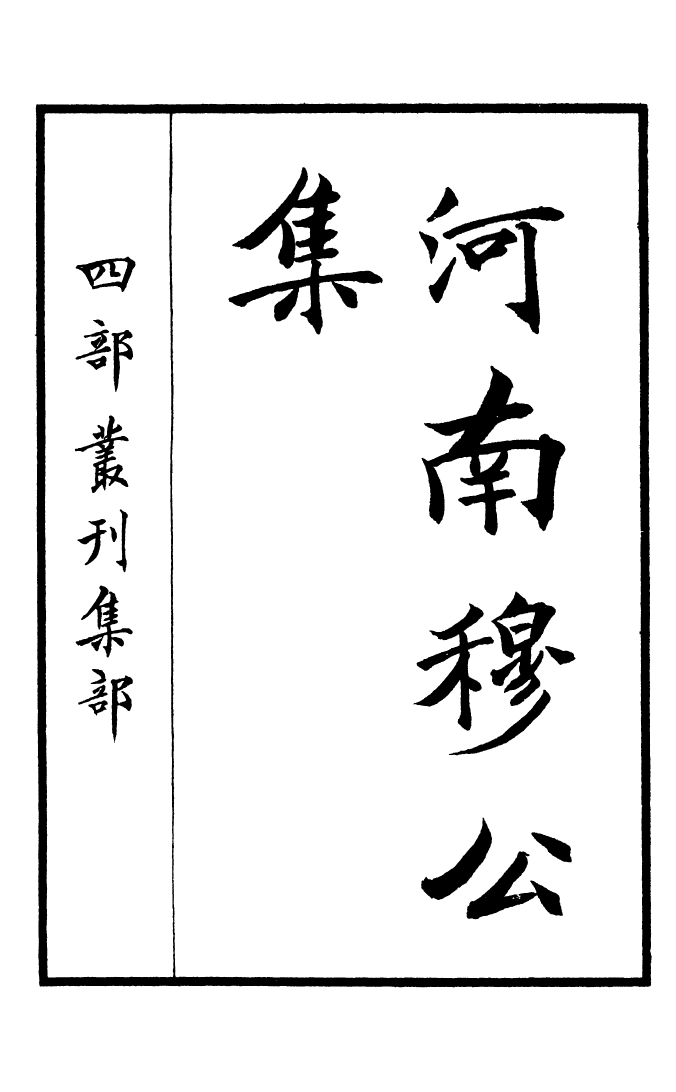 河南穆公
集
四部叢刊集部